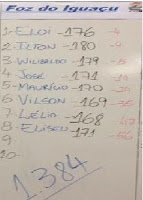 Foz do Iguaçu
1- ELOI - 176 -4
2- ILTON - 180 -4
3- WILIBALDO - 179 -5
4- JOSÉ - 171
5- MAURÍLIO - 170
6- VILSON - 169
7- LÉLIO - 168
8- ELISEU - 171 -56
9-
10-
1384